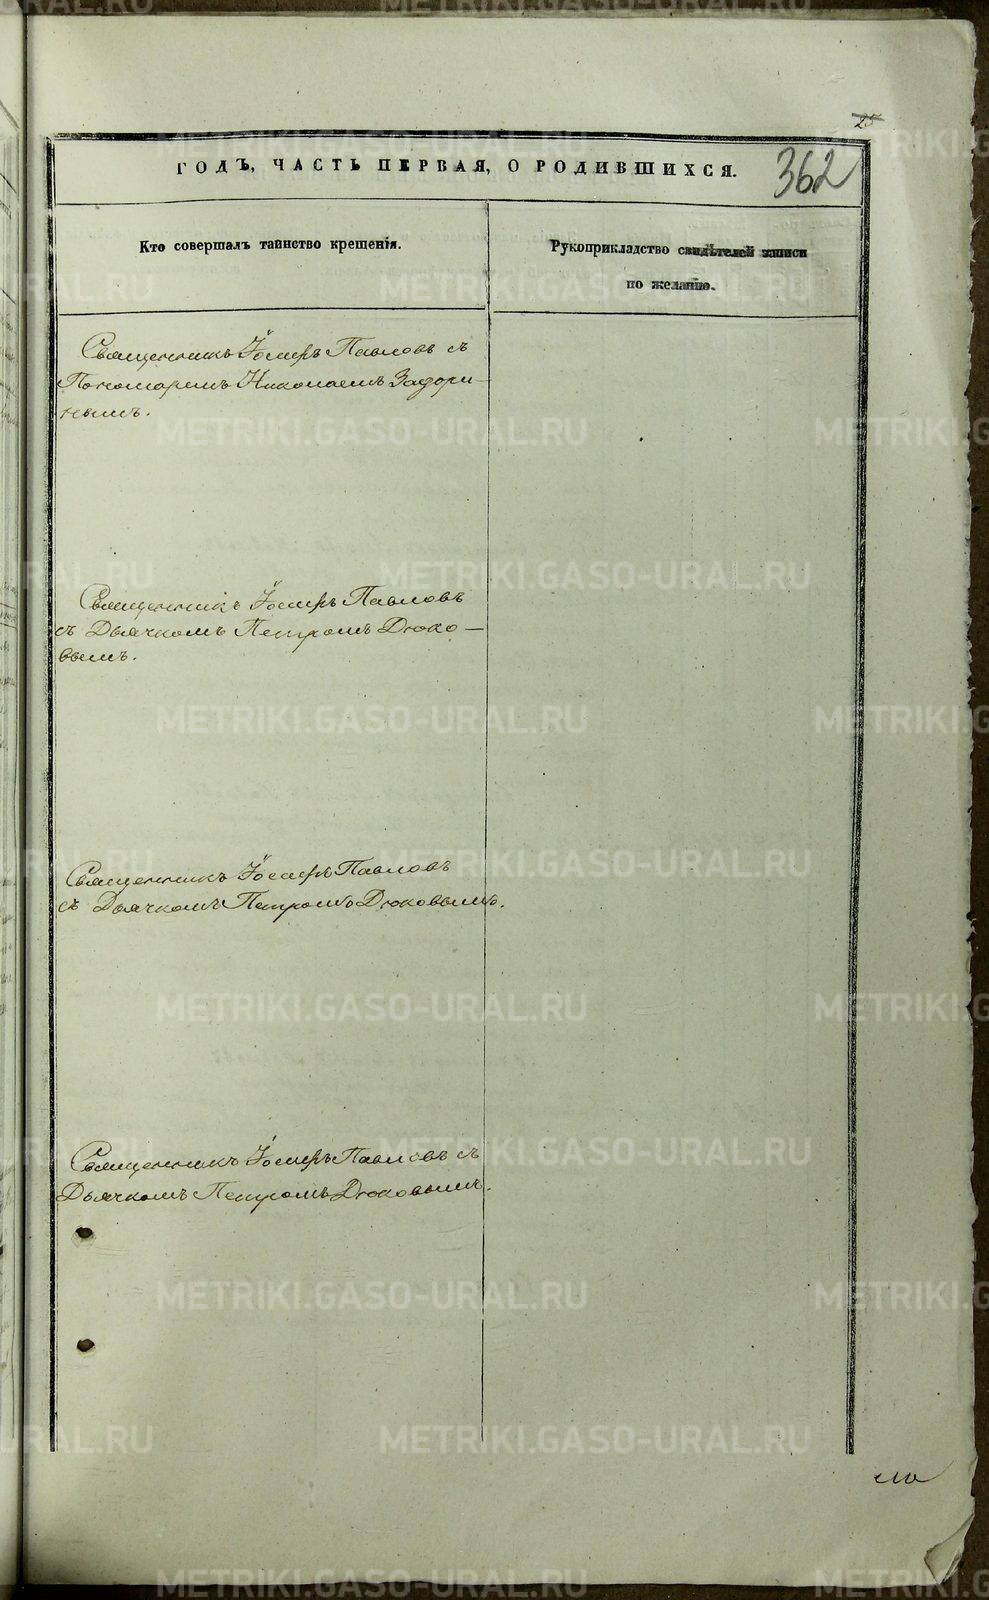 25
ГОДЪ, ЧАСТЬ ПЕРВАЯ, О РОДИВШИХСЯ.
362
Кто совершалъ таинство крещенія.
Рукоприкладство свидѣтелей записи
по желанію.
Священникъ Іосифъ Павловъ съ
Пономаремъ Николаемъ Задори-
нымъ.
Священникъ Іосифъ Павловъ
съ Дьячкомъ Петромъ Дюко-
вымъ.
Священникъ Іосифъ Павловъ
съ Дьячкомъ Петромъ Дюковымъ.
Священникъ Іосифъ Павловъ съ
Дьячкомъ Петромъ Дюковымъ.
METRIKI.GASO-URAL.RU